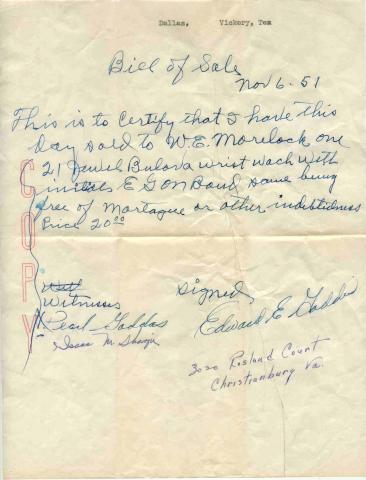 Dallas, Vickery, Tex
Bill of Sale
Nov 6 - 51
This is to certify that I have this
day sold to W.E. Morelock one
21 Jewel Bulova wrist wach with
E G on Band, same being
free of Mortague or other indibtidness
Price 20.00
COPY
Witnesses
Pearl Gaddis
Isaac M
Signed,
Edward E. Gaddis
3020 Rosland Court
Christianburg Va